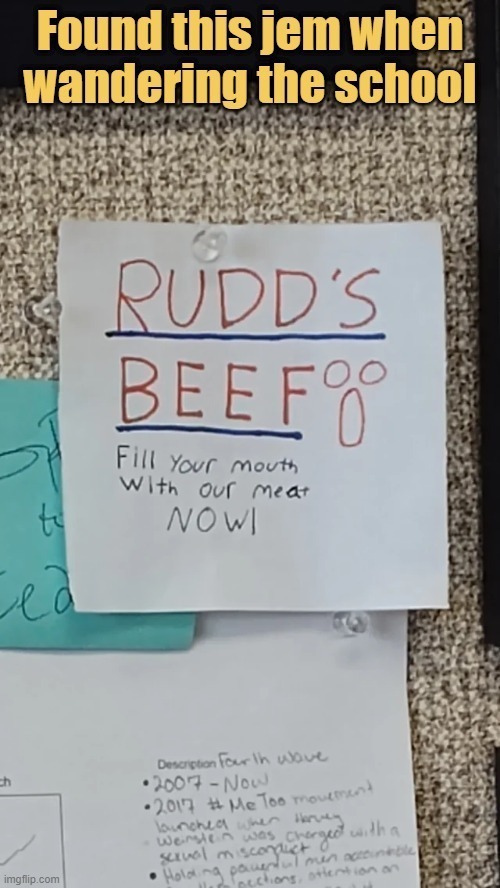 Found this jem when
wandering the school
RUDD'S
BEEF
Fill Your mouth
With our meat
NOW!
Description Fourth wave
• 2007 - Now
• 2017 # MeToo movement
launched when Harvey
Weinstein was charged with a
sexual misconduct
• Holding powerful men accountable
actions, attention on
imgflip.com